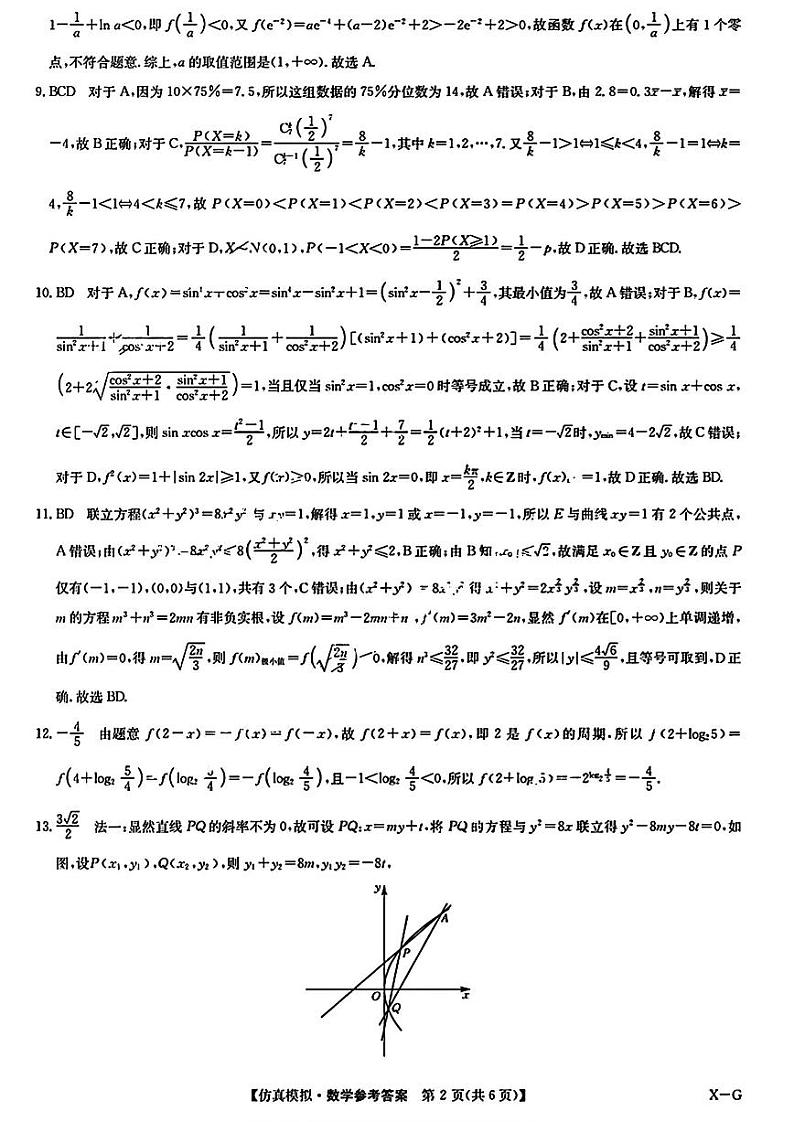 1-1/a+ln a<0,即 f(1/a)<0,又 f(e⁻²)=ae⁻⁴+(a-2)e⁻²+2>-2e⁻²+2>0,故函数 f(x)在(0,1/a)上有 1 个零
点,不符合题意.综上,a 的取值范围是(1,+∞).故选 A.
9. BCD 对于 A,因为 10×75%=7.5,所以这组数据的 75%分位数为 14,故 A 错误;对于 B,由 2.8=0.3x̄-x̄,解得 x̄=
-4,故 B 正确;对于 C,P(X=k)/P(X=k-1)=C₇ᵏ(1/2)⁷/C₇ᵏ⁻¹(1/2)⁷=8/k-1,其中 k=1,2,…,7.又8/k-1>1⇔1≤k<4,8/k-1=1⇔k=
4,8/k-1<1⇔4<k≤7,故 P(X=0)<P(X=1)<P(X=2)<P(X=3)=P(X=4)>P(X=5)>P(X=6)>
P(X=7),故 C 正确;对于 D,X~N(0,1),P(-1<X<0)=(1-2P(X≥1))/2=1/2-p,故 D 正确.故选 BCD.
10. BD 对于 A,f(x)=sin⁴x+cos²x=sin⁴x-sin²x+1=(sin²x-1/2)²+3/4,其最小值为3/4,故 A 错误;对于 B,f(x)=
1/(sin²x+1)+1/(cos²x+2)=1/4(1/(sin²x+1)+1/(cos²x+2))[(sin²x+1)+(cos²x+2)]=1/4(2+(cos²x+2)/(sin²x+1)+(sin²x+1)/(cos²x+2))≥1/4
(2+2√((cos²x+2)/(sin²x+1)·(sin²x+1)/(cos²x+2)))=1,当且仅当 sin²x=1,cos²x=0 时等号成立,故 B 正确;对于 C,设 t=sin x+cos x,
t∈[-√2,√2],则 sin xcos x=(t²-1)/2,所以 y=2t+(t²-1)/2+7/2=1/2(t+2)²+1,当 t=-√2时,yₘᵢₙ=4-2√2,故 C 错误;
对于 D,f²(x)=1+|sin 2x|≥1,又 f(x)≥0,所以当 sin 2x=0,即 x=kπ/2,k∈Z时,f(x) =1,故 D 正确.故选 BD.
11. BD 联立方程(x²+y²)³=8x²y² 与 xy=1,解得 x=1,y=1 或 x=-1,y=-1,所以 E 与曲线 xy=1 有 2 个公共点,
A 错误;由(x²+y²)³=8x²y²≤8((x²+y²)/2)²,得 x²+y²≤2,B 正确;由 B 知|x₀|≤√2,故满足 x₀∈Z 且 y₀∈Z 的点 P
仅有(-1,-1),(0,0)与(1,1),共有 3 个,C 错误;由(x²+y²)³=8x²y² 得 x²+y²=2x^(2/3)y^(2/3),设 m=x^(2/3),n=y^(2/3),则关于
m 的方程 m³+n³=2mn 有非负实根,设 f(m)=m³-2mn+n³,f′(m)=3m²-2n,显然 f′(m)在[0,+∞)上单调递增,
由 f′(m)=0,得 m=√(2n/3),则 f(m)极小值=f(√(2n/3))≤0,解得 n³≤32/27,即 y²≤32/27,所以|y|≤4√6/9,且等号可取到,D 正
确.故选 BD.
12. -4/5 由题意 f(2-x)=-f(x)=f(-x),故 f(2+x)=f(x),即 2 是 f(x)的周期.所以 f(2+log₂5)=
f(4+log₂ 5/4)=f(log₂ 5/4)=-f(log₂ 4/5),且-1<log₂ 4/5<0,所以 f(2+log₂5)=-2^(log₂ 4/5)=-4/5.
13. 3√2/2 法一:显然直线 PQ的斜率不为 0,故可设 PQ:x=my+t,将 PQ的方程与 y²=8x 联立得 y²-8my-8t=0,如
图,设P(x₁,y₁),Q(x₂,y₂),则 y₁+y₂=8m,y₁y₂=-8t,
y
A
P
O
x
Q
【仿真模拟·数学参考答案 第 2 页(共 6 页)】
X-G